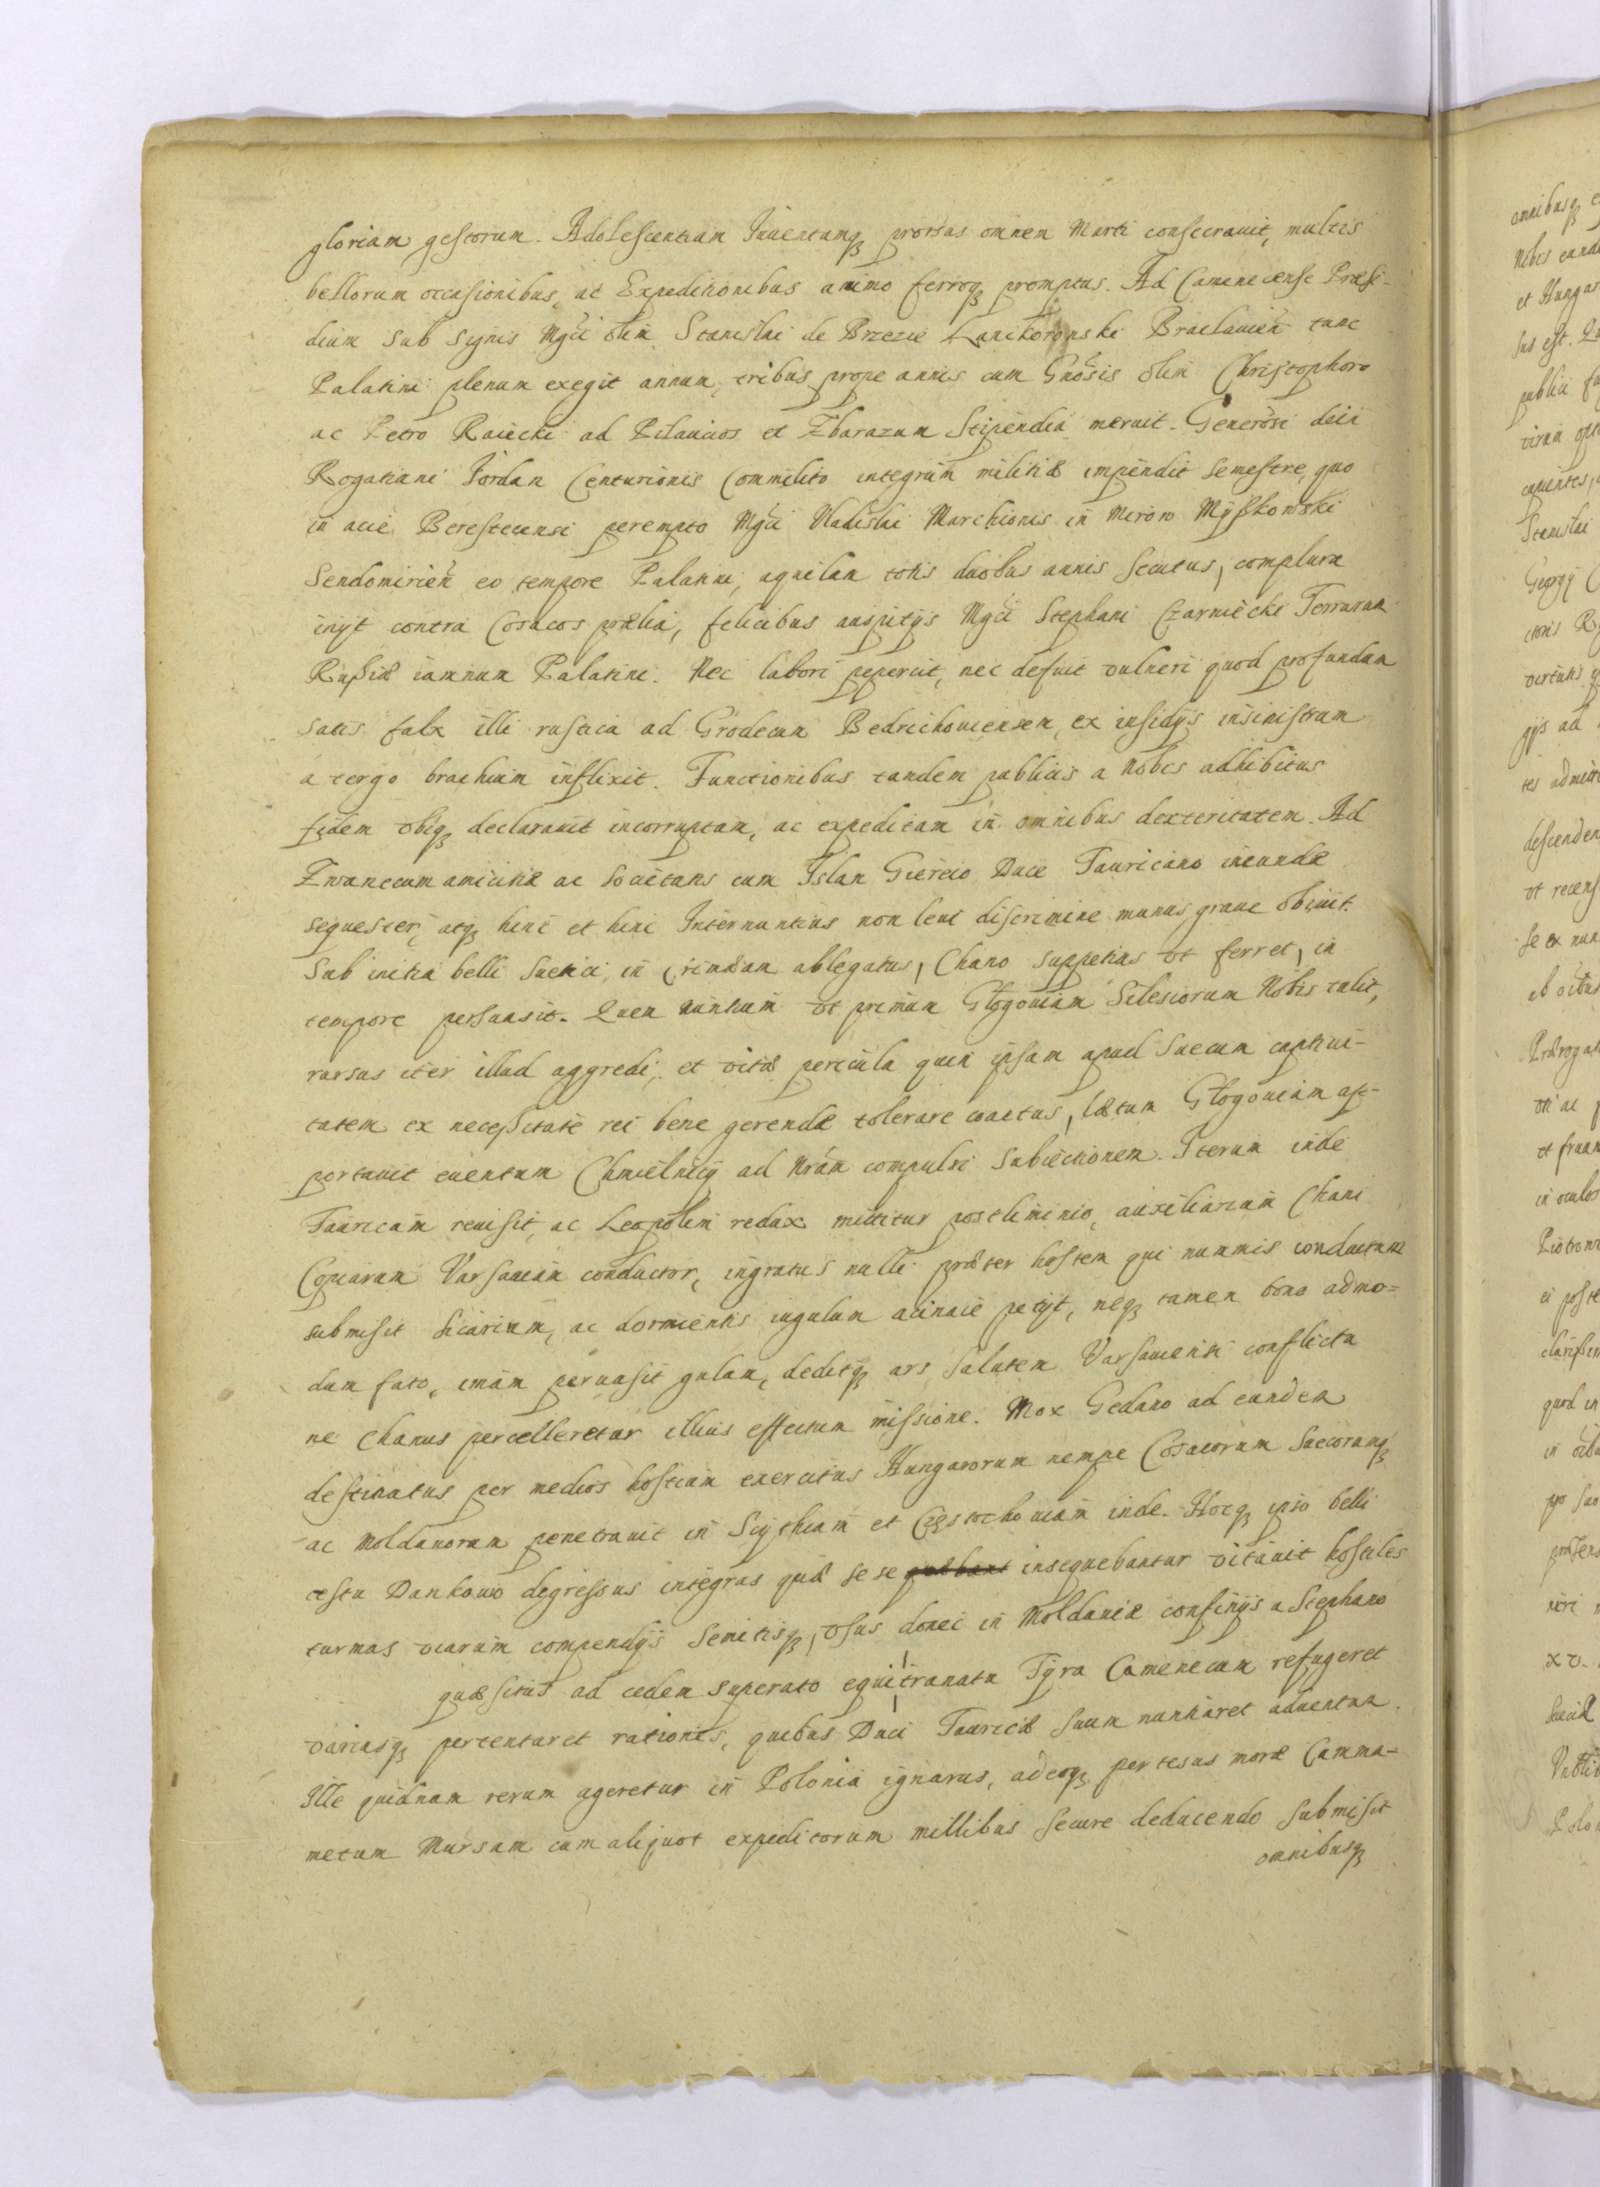 gloriam gestorum. Adolescentiam Iuuentamq; prorsus omnem Marti consecrauit, multis
bellorum occasionibus, ac Expeditionibus animo ferroq; promptus. Ad Camenecense Præsi-
dium sub signis Mgci olim Stanislai de Brzezie Lanckoronski Braclauien tunc
Palatini plenum exegit annum, tribus prope annis cum Gnosis olim Christophoro
ac Petro Raiecki ad Pilauios et Zbarazum Stipendia meruit. Generosi dein
Rogatiani Iordan Centurionis Commilito integrum militiæ impendit semestre, quo
in acie Berestecensi perempto Mgci Vladislai Marchionis in Mirow Myszkowski
Sendomirien eo tempore Palatini, aquilam totis duobus annis secutus, complura
inyt contra Cosacos prælia, felicibus auspitijs Mgci Stephani Czarniecki Terrarum
Rußiæ iamnum Palatini. Nec labori pepercit, nec defuit vulneri quod profundum
satis falx illi rustica ad Grodecum Bedrichouiensem, ex insidijs insinistrum
a tergo brachium inflixit. Functionibus tandem publicis a Nobis adhibitus
fidem vbiq; declarauit incorruptam, ac expeditam in omnibus dexteritatem. Ad
Zwanecum amicitiæ ac societatis cum Islan Giereio Duce Tauricano ineundæ
sequester, atq; hinc et hinc Internuntius non leui discrimine munus graue obiuit.
Sub initia belli Suetici in Crimæam ablegatus, Chano suppetias vt ferret, in
tempore persuasit. Quem nuntium vt primum Glogouiam Silesiorum Nobis tulit,
rursus iter illud aggredi, et vitæ pericula quin ipsam apud Suecum captiui-
tatem ex neceßitate rei bene gerendæ tolerare coactus, lætum Glogouiam ap-
portauit euentum Chmielnicij ad Nram compulsi subiectionem. Iterum inde
Tauricam reuisit, ac Leopolim redux mittitur postliminio, auxiliarium Chani
Copiarum Varsauiam conductor, ingratus nulli præter hostem qui nummis conductum
submisit sicarium, ac dormientis iugulum acinace petijt, neq; tamen bono admo=
dum fato, imam peruasit gulam, deditq; ars salutem Varsauiensi conflictu
ne Chanus percelleretur illius effectum missione. Mox Gedano ad eundem
destinatus per medios hostium exercitus Hungarorum nempe Cosacorum Suecorumq;
ac Moldauorum penetrauit in Scythiam et Częstochouiam inde. Hocq; ipso belli
æstu Dankowo degressus integras quæ sese insequebantur vitauit hostiles
turmas viarum compendijs semitisq; vsus donec in Moldauiæ confinijs a Stephano
quæsitus ad cedem superato equitranatu Tyra Camenecum refugeret
variasq; pertentaret rationes, quibus Duci Tauricæ suum nuntiaret aduentum.
Ille quidnam rerum ageretur in Polonia ignarus, adeoq; pertesus moræ Camma-
metum Mursam cum aliquot expeditorum millibus secure deducendo submisit
omnibusq;